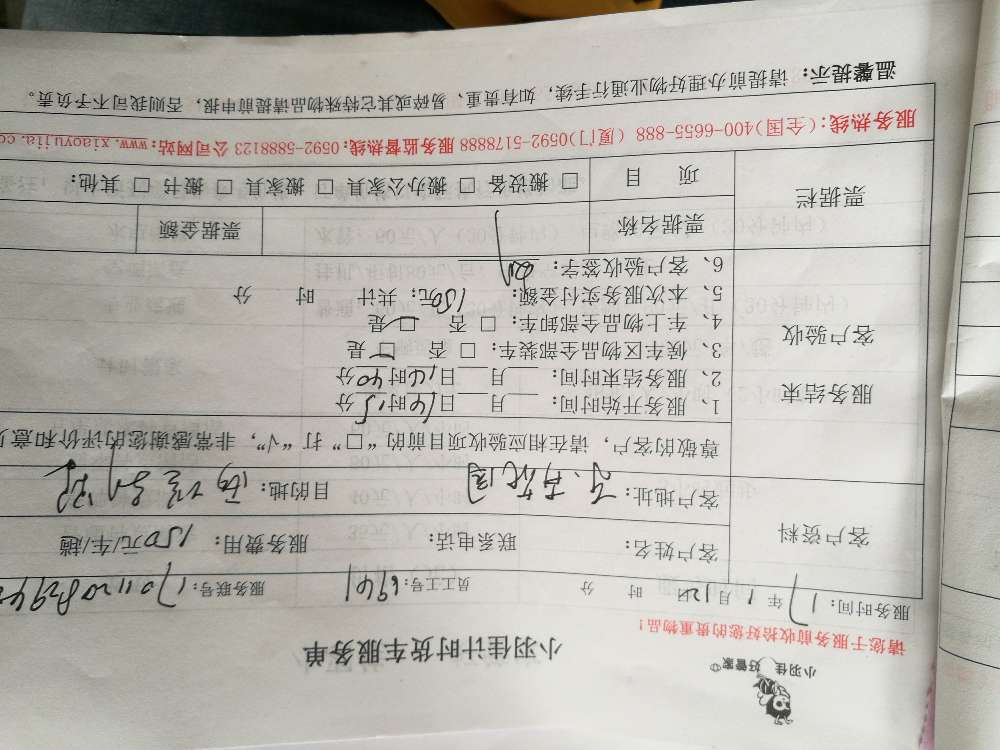 小羽佳 好管家
小羽佳计时货车服务单
请您于服务前收拾好您的贵重物品！
服务时间：17年1月12日 时 分 员工工号：6961 服务联号：
客户资料 客户姓名： 联系电话： 服务费用：150元/车/趟
客户地址： 目的地：
尊敬的客户，请在相应验收项目前的“□”打“√”，非常感谢您的评价和意
服务结束
客户验收
1、服务开始时间：___月___日16时15分
2、服务结束时间：___月___日16时40分
3、候车区物品全部装车：□ 否 □ 是
4、车上物品全部卸车：□ 否 □ 是
5、本次服务实付金额：150元；共计 时 分
6、客户验收签字：
票据栏 票据名称 票据金额
项 目 □ 搬设备 □ 搬办公家具 □ 搬家具 □ 搬书 □ 其他：
服务热线：(全国)400-6655-888 (厦门)0592-5178888 服务监督热线：0592-5888123 公司网站：www.xiaoyujia.co
温馨提示：请提前办理好物业通行手续，如有贵重、易碎或其它特殊物品请提前申报，否则我司不予负责。